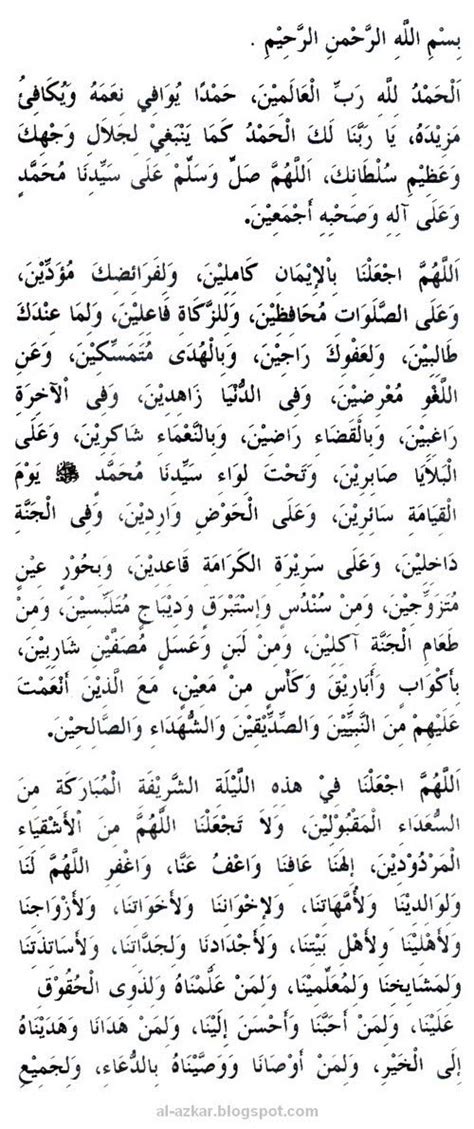 بِسْمِ اللَّهِ الرَّحْمنِ الرَّحِيْمِ .
اَلْحَمْدُ للَّهِ رَبِّ الْعَالَمِيْنَ، حَمْدًا يُوَافِي نِعَمَهُ وَيُكَافِئُ
مَزِيْدَهُ، يَا رَبَّنَا لَكَ الْحَمْدُ كَمَا يَنْبَغِيْ لِجَلاَلِ وَجْهِكَ
وَعَظِيْمِ سُلْطَانِكَ، اَللَّهُمَّ صَلِّ وَسَلِّمْ عَلَى سَيِّدِنَا مُحَمَّدٍ
وَعَلَى آلِهِ وَصَحْبِهِ أَجْمَعِيْنَ.
اَللَّهُمَّ اجْعَلْنَا بِاْلإِيْمَانِ كَامِلِيْنَ، وَلِفَرَائِضِكَ مُؤَدِّيْنَ،
وَعَلَى الصَّلَوَاتِ مُحَافِظِيْنَ، وَلِلزَّكَاةِ فَاعِلِيْنَ، وَلِمَا عِنْدَكَ
طَالِبِيْنَ، وَلِعَفْوِكَ رَاجِيْنَ، وَبِالْهُدَى مُتَمَسِّكِيْنَ، وَعَنِ
اللَّغْوِ مُعْرِضِيْنَ، وَفِى الدُّنْيَا زَاهِدِيْنَ، وَفِى اْلآخِرَةِ
رَاغِبِيْنَ، وَبِالْقَضَاءِ رَاضِيْنَ، وَبِالنَّعْمَاءِ شَاكِرِيْنَ، وَعَلَى
الْبَلاَيَا صَابِرِيْنَ، وَتَحْتَ لِوَاءِ سَيِّدِنَا مُحَمَّدٍ ﷺ يَوْمَ
الْقِيَامَةِ سَائِرِيْنَ، وَعَلَى الْحَوْضِ وَارِدِيْنَ، وَفِى الْجَنَّةِ
دَاخِلِيْنَ، وَعَلَى سَرِيْرَةِ الْكَرَامَةِ قَاعِدِيْنَ، وَبِحُوْرٍ عِيْنٍ
مُتَزَوِّجِيْنَ، وَمِنْ سُنْدُسٍ وَإِسْتَبْرَقٍ وَدِيْبَاجٍ مُتَلَبِّسِيْنَ، وَمِنْ
طَعَامِ الْجَنَّةِ آكِلِيْنَ، وَمِنْ لَبَنٍ وَعَسَلٍ مُصَفَّيْنِ شَارِبِيْنَ،
بِأَكْوَابٍ وَأَبَارِيْقَ وَكَأْسٍ مِنْ مَعِيْنٍ، مَعَ الَّذِيْنَ أَنْعَمْتَ
عَلَيْهِمْ مِنَ النَّبِيِّيْنَ وَالصِّدِّيْقِيْنَ وَالشُّهَدَاءِ وَالصَّالِحِيْنَ.
اَللَّهُمَّ اجْعَلْنَا فِيْ هذِهِ اللَّيْلَةِ الشَّرِيْفَةِ الْمُبَارَكَةِ مِنَ
السُّعَدَاءِ الْمَقْبُوْلِيْنَ، وَلاَ تَجْعَلْنَا اللَّهُمَّ مِنَ اْلأَشْقِيَاءِ
الْمَرْدُوْدِيْنَ، إِلهَنَا عَافِنَا وَاعْفُ عَنَّا، وَاغْفِرِ اللَّهُمَّ لَنَا
وَلِوَالِدِيْنَا وَلأُمَّهَاتِنَا، وَلإِخْوَانِنَا وَلأَخَوَاتِنَا، وَلأَزْوَاجِنَا
وَلأَهْلِيْنَا وَلأَهْلِ بَيْتِنَا، وَلأَجْدَادِنَا وَلِجَدَّاتِنَا، وَلأَسَاتِذَتِنَا
وَلِمَشَايِخِنَا وَلِمُعَلِّمِيْنَا، وَلِمَنْ عَلَّمْنَاهُ وَلِذَوِى الْحُقُوْقِ
عَلَيْنَا، وَلِمَنْ أَحَبَّنَا وَأَحْسَنَ إِلَيْنَا، وَلِمَنْ هَدَانَا وَهَدَيْنَاهُ
إِلَى الْخَيْرِ، وَلِمَنْ أَوْصَانَا وَوَصَّيْنَاهُ بِالدُّعَاءِ، وَلِجَمِيْعِ
al-azkar.blogspot.com